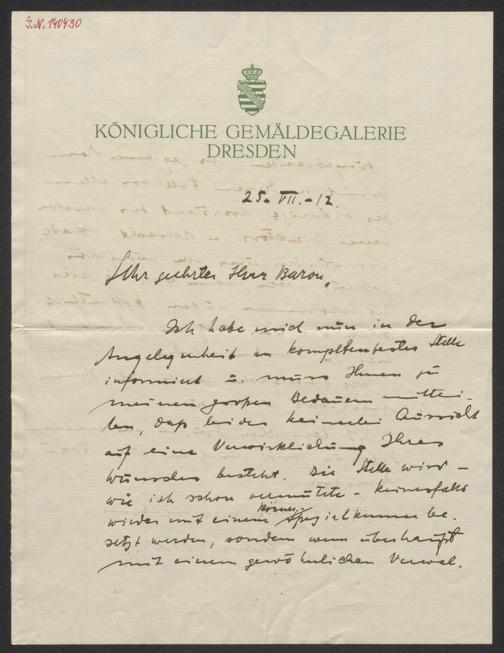 I.N. 140430
KÖNIGLICHE GEMÄLDEGALERIE
DRESDEN
25. VII. - 12.
Sehr geehrter Herr Baron,
Ich habe mich nun in der
Angelegenheit an kompetentester Stelle
informiert u. muss Ihnen zu
meinem großen Bedauern mittei-
len, daß leider keinerlei Aussicht
auf eine Verwirklichung Ihres
Wunsches besteht. Die Stelle wird –
wie ich schon vermutete – keinesfalls
wieder mit einem Spezialkenner be-
setzt werden, sondern wenn überhaupt
mit einem gewöhnlichen Verwal-